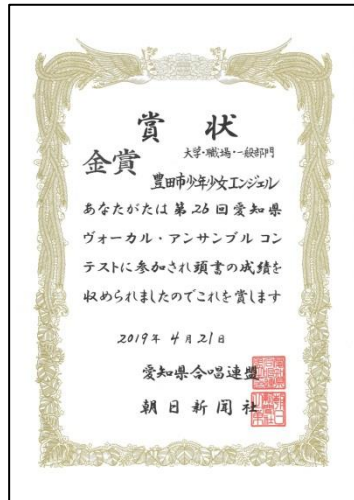 賞 状
大学・職場・一般部門
金賞
豊田市少年少女エンジェル
あなたがたは第26回愛知県
ヴォーカル・アンサンブルコン
テストに参加され頭書の成績を
収められましたのでこれを賞します
2019年 4月21日
愛知県合唱連盟
朝日新聞社